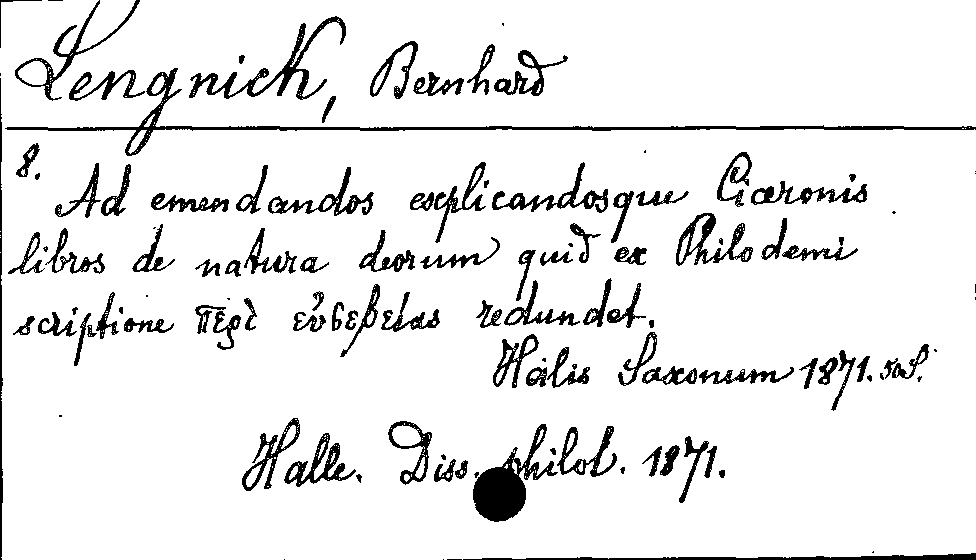 Lengnick, Bernhard
8.
Ad emendandos explicandosque Ciceronis
libros de natura deorum quid ex Philodemi
scriptione περὶ εὐσεβείας redundet.
Halis Saxonum 1871. 50 S.
Halle. Diss. philol. 1871.